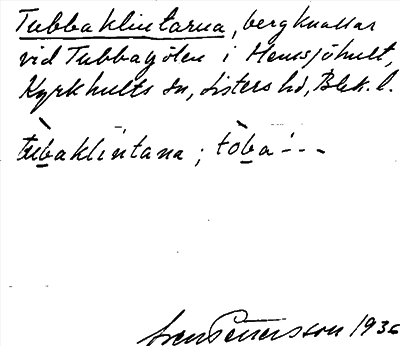 Tubbaklintarna, bergknallar
vid Tubbagölen i Hemsjöhult,
Kyrkhults sn, Listers hd, Blek. l.
tùbaklintana; tòba - - -
Sven Petersson 1936